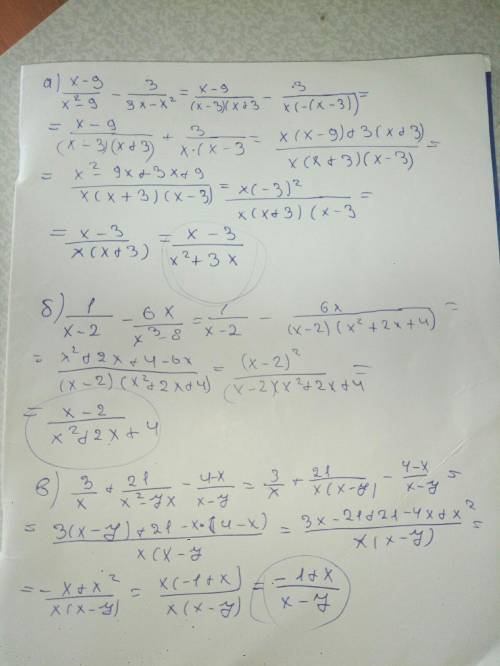 а) (x-9)/(x²-9) - 3/(3x-x²) = (x-9)/((x-3)(x+3) - 3/(x(-(x-3)) =
= (x-9)/((x-3)(x+3) + 3/(x·(x-3) = (x(x-9)+3(x+3))/(x(x+3)(x-3)) =
= (x²-9x+3x+9)/(x(x+3)(x-3)) = (x(-3)²)/(x(x+3)(x-3) =
= (x-3)/(x(x+3)) = (x-3)/(x²+3x)
б) 1/(x-2) - 6x/(x³-8) = 1/(x-2) - 6x/((x-2)(x²+2x+4)) =
= (x²+2x+4-6x)/((x-2)(x²+2x+4)) = (x-2)²/((x-2)(x²+2x+4) =
= (x-2)/(x²+2x+4)
в) 3/x + 21/(x²-yx) - (4-x)/(x-y) = 3/x + 21/(x(x-y)) - (4-x)/(x-y) =
= (3(x-y)+21-x·(4-x))/(x(x-y) = (3x-21+21-4x+x²)/(x(x-y)) =
= (-x+x²)/(x(x-y)) = (x(-1+x))/(x(x-y)) = (-1+x)/(x-y)